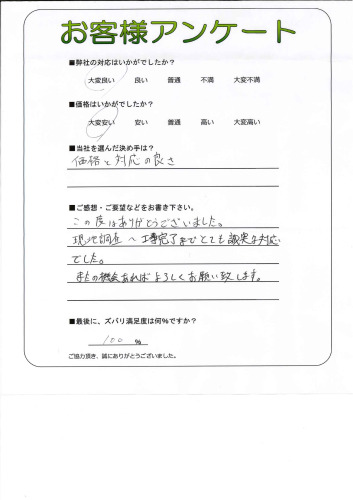 お客様アンケート
■弊社の対応はいかがでしたか?
大変良い 良い 普通 不満 大変不満
■価格はいかがでしたか?
大変安い 安い 普通 高い 大変高い
■当社を選んだ決め手は?
価格と対応の良さ
■ご感想・ご要望などをお書き下さい。
この度はありがとうございました。
現地調査〜工事完了までとても誠実な対応
でした。
またの機会あればよろしくお願い致します。
■最後に、ズバリ満足度は何%ですか?
100 %
ご協力頂き、誠にありがとうございました。